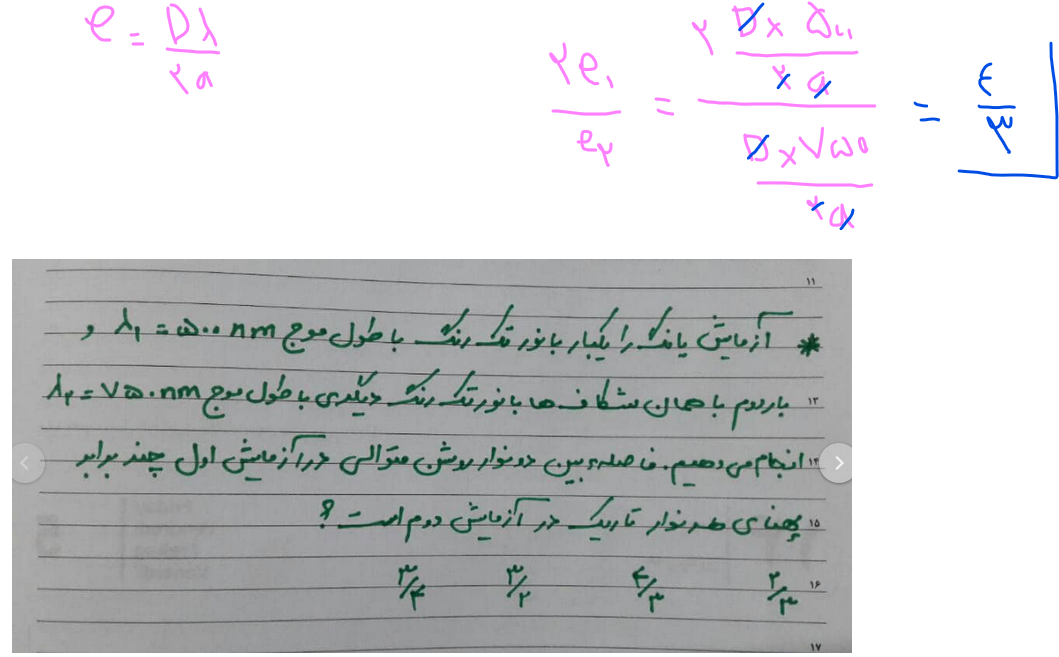 e = Dλ / ۲a
۲e۱ / e۲ = ۲ D × ۵۰۰ / ۲a / D × ۷۵۰ / ۲a = ۴ / ۳
۱۱
* آزمایش یانگ را یکبار با نور تک رنگ با طول موج λ۱ = ۵۰۰ nm و
۱۳ بار دوم با همان شکاف ها با نور تک رنگ دیگری با طول موج λ۲ = ۷۵۰ nm
۱۴ انجام می دهیم. فاصله ی بین دو نوار روشن متوالی در آزمایش اول چند برابر
۱۵ پهنای هر نوار تاریک در آزمایش دوم است؟
۱۶ ۲/۳ ۴/۳ ۳/۲ ۳/۴
۱۷